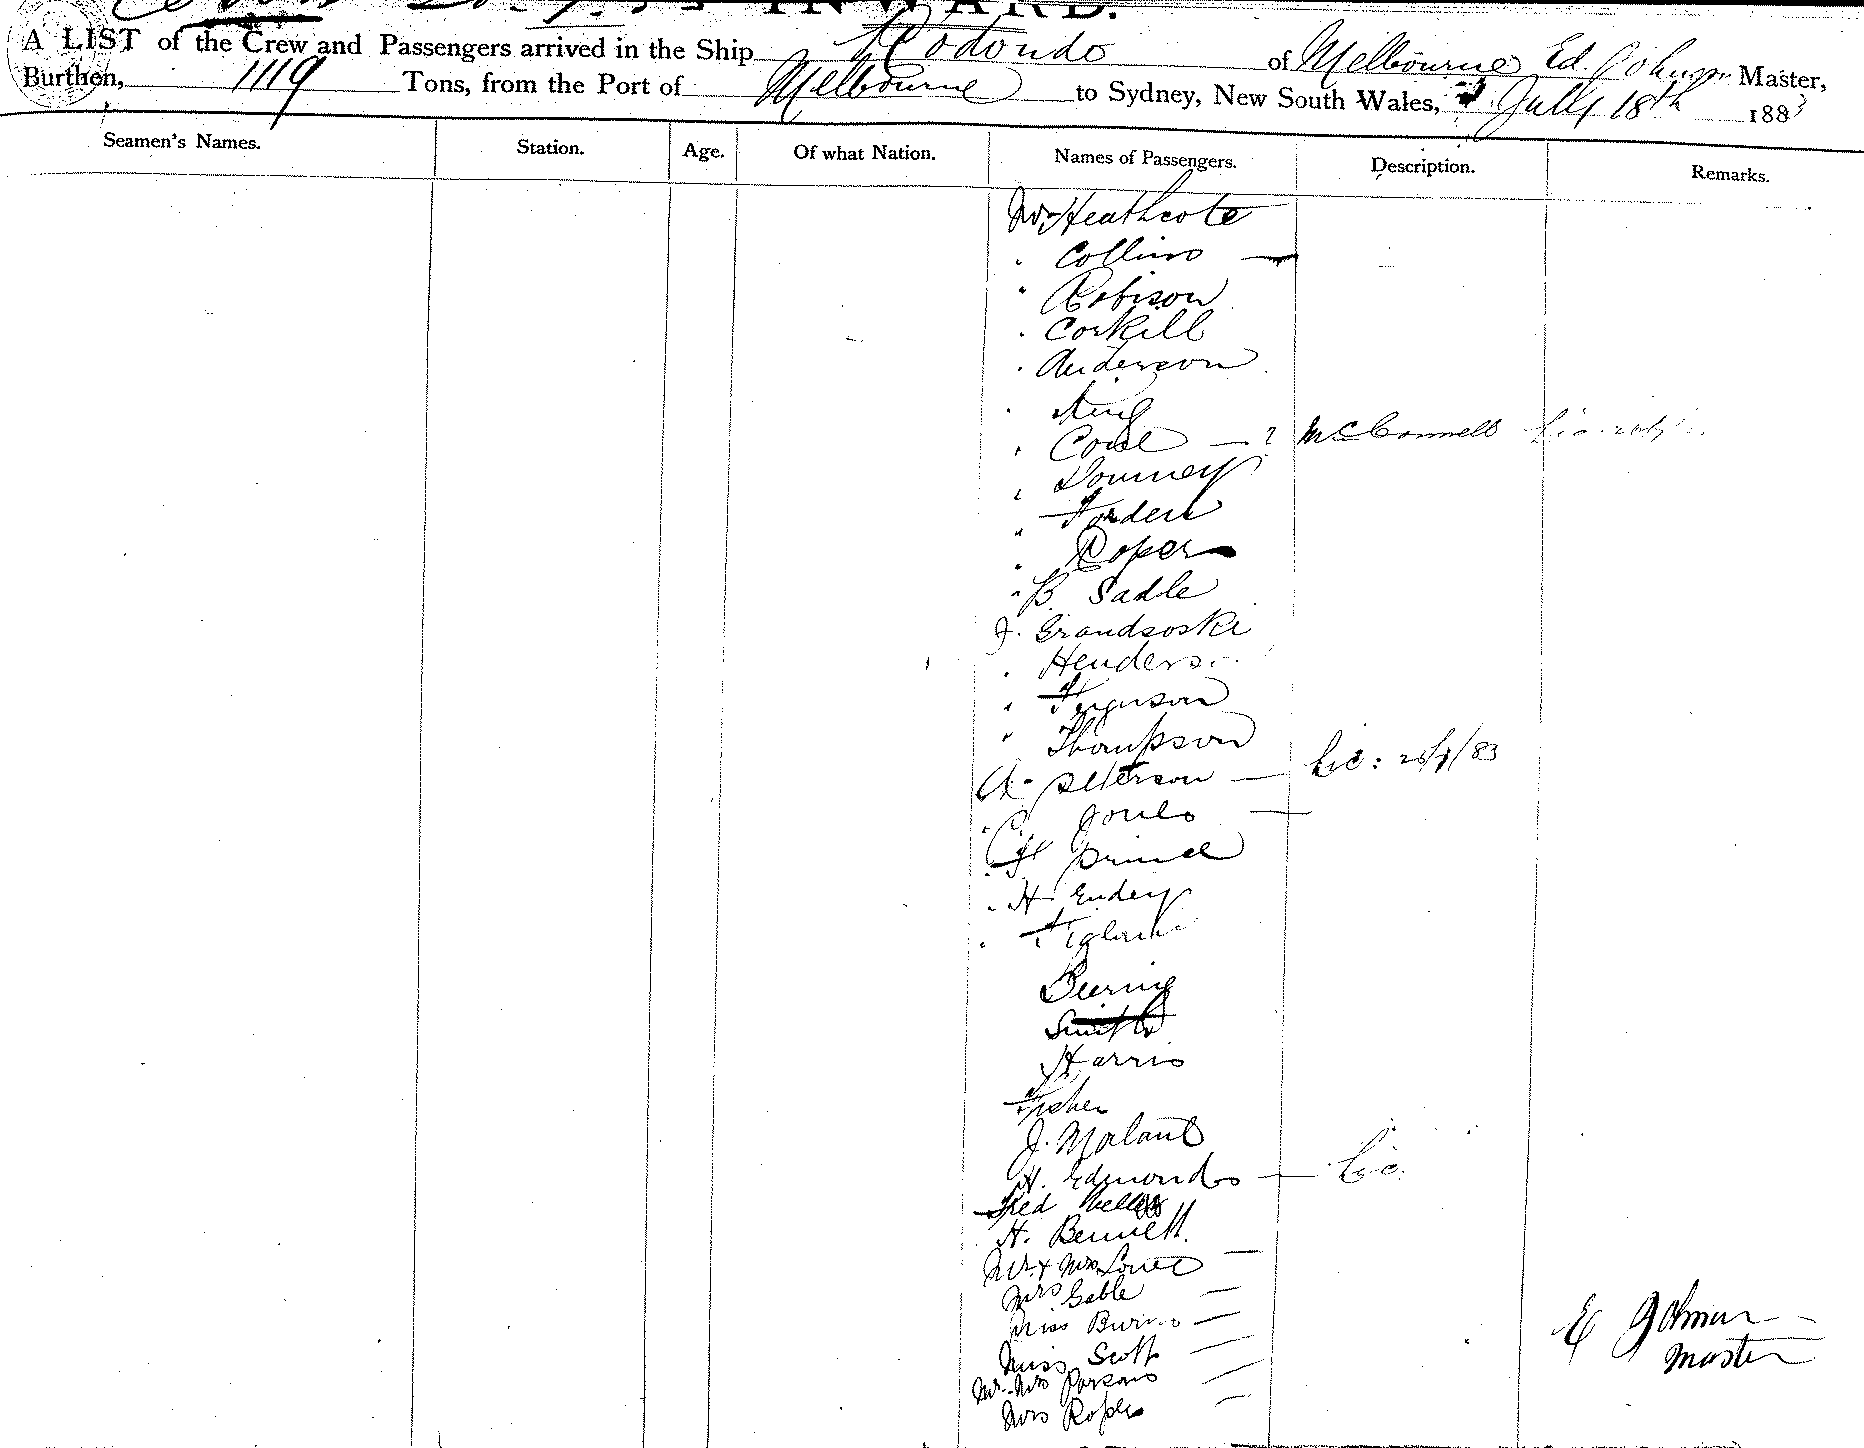 INWARD.
A LIST of the Crew and Passengers arrived in the Ship Rodondo of Melbourne Ed. Johnson Master,
Burthen, 1119 Tons, from the Port of Melbourne to Sydney, New South Wales, July 18th 1883
Seamen's Names. Station. Age. Of what Nation. Names of Passengers. Description. Remarks.
Mr Heathcote
" Collins —
" Robison
" Corkill
" Anderson
" King
" — ? McConnell Lic.
" Downey
"
" Roper
" B Sadle
J. Grandsoski
"
" Ferguson
" Thompson
A. Peterson — Lic: /83
" Jones —
" H Prince
" H Endey
"
Smith
Harris
Fisher
J. Morland
H. Edmonds — Lic.
Fred
H. Bennett
Mr & Mrs —
Mrs Gable —
Miss —
Miss Scott —
Mr. Mrs Parsons —
Mrs Roper —
E Johnson
Master